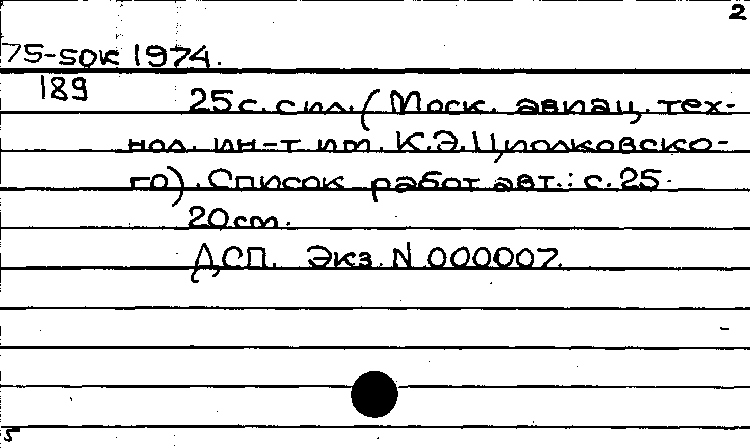 2
75-50к 1974.
189
25 с. с ил. (Моск. авиац. тех-
нол. ин-т им. К.Э.Циолковско-
го). Список работ авт.: с. 25.
20 см.
ДСП. Экз. N 000007.
5